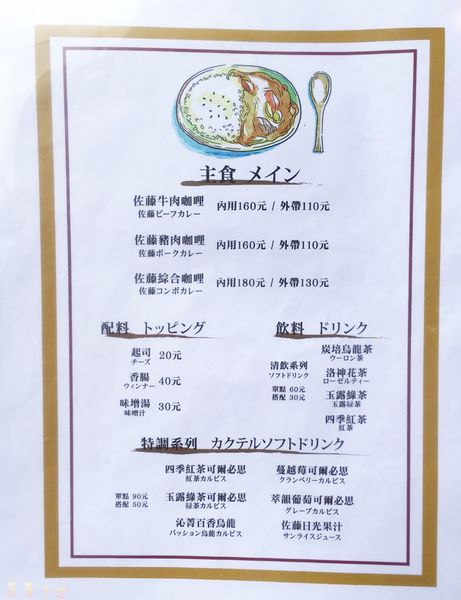 主食 メイン
佐藤牛肉咖哩 內用160元 / 外帶110元
佐藤ビーフカレー
佐藤豬肉咖哩 內用160元 / 外帶110元
佐藤ポークカレー
佐藤綜合咖哩 內用180元 / 外帶130元
佐藤コンボカレー
配料 トッピング
起司 20元
チーズ
香腸 40元
ウィンナー
味增湯 30元
味增汁
飲料 ドリンク
清飲系列
ソフトドリンク
單點 60元
搭配 30元
炭培烏龍茶
ウーロン茶
洛神花茶
ローゼルティー
玉露綠茶
玉露緑茶
四季紅茶
紅茶
特調系列 カクテルソフトドリンク
單點 90元
搭配 50元
四季紅茶可爾必思
紅茶カルピス
蔓越莓可爾必思
クランベリーカルピス
玉露綠茶可爾必思
緑茶カルピス
萃韻葡萄可爾必思
グレープカルピス
沁菁百香烏龍
パッション烏龍カルピス
佐藤日光果汁
サンライズジュース